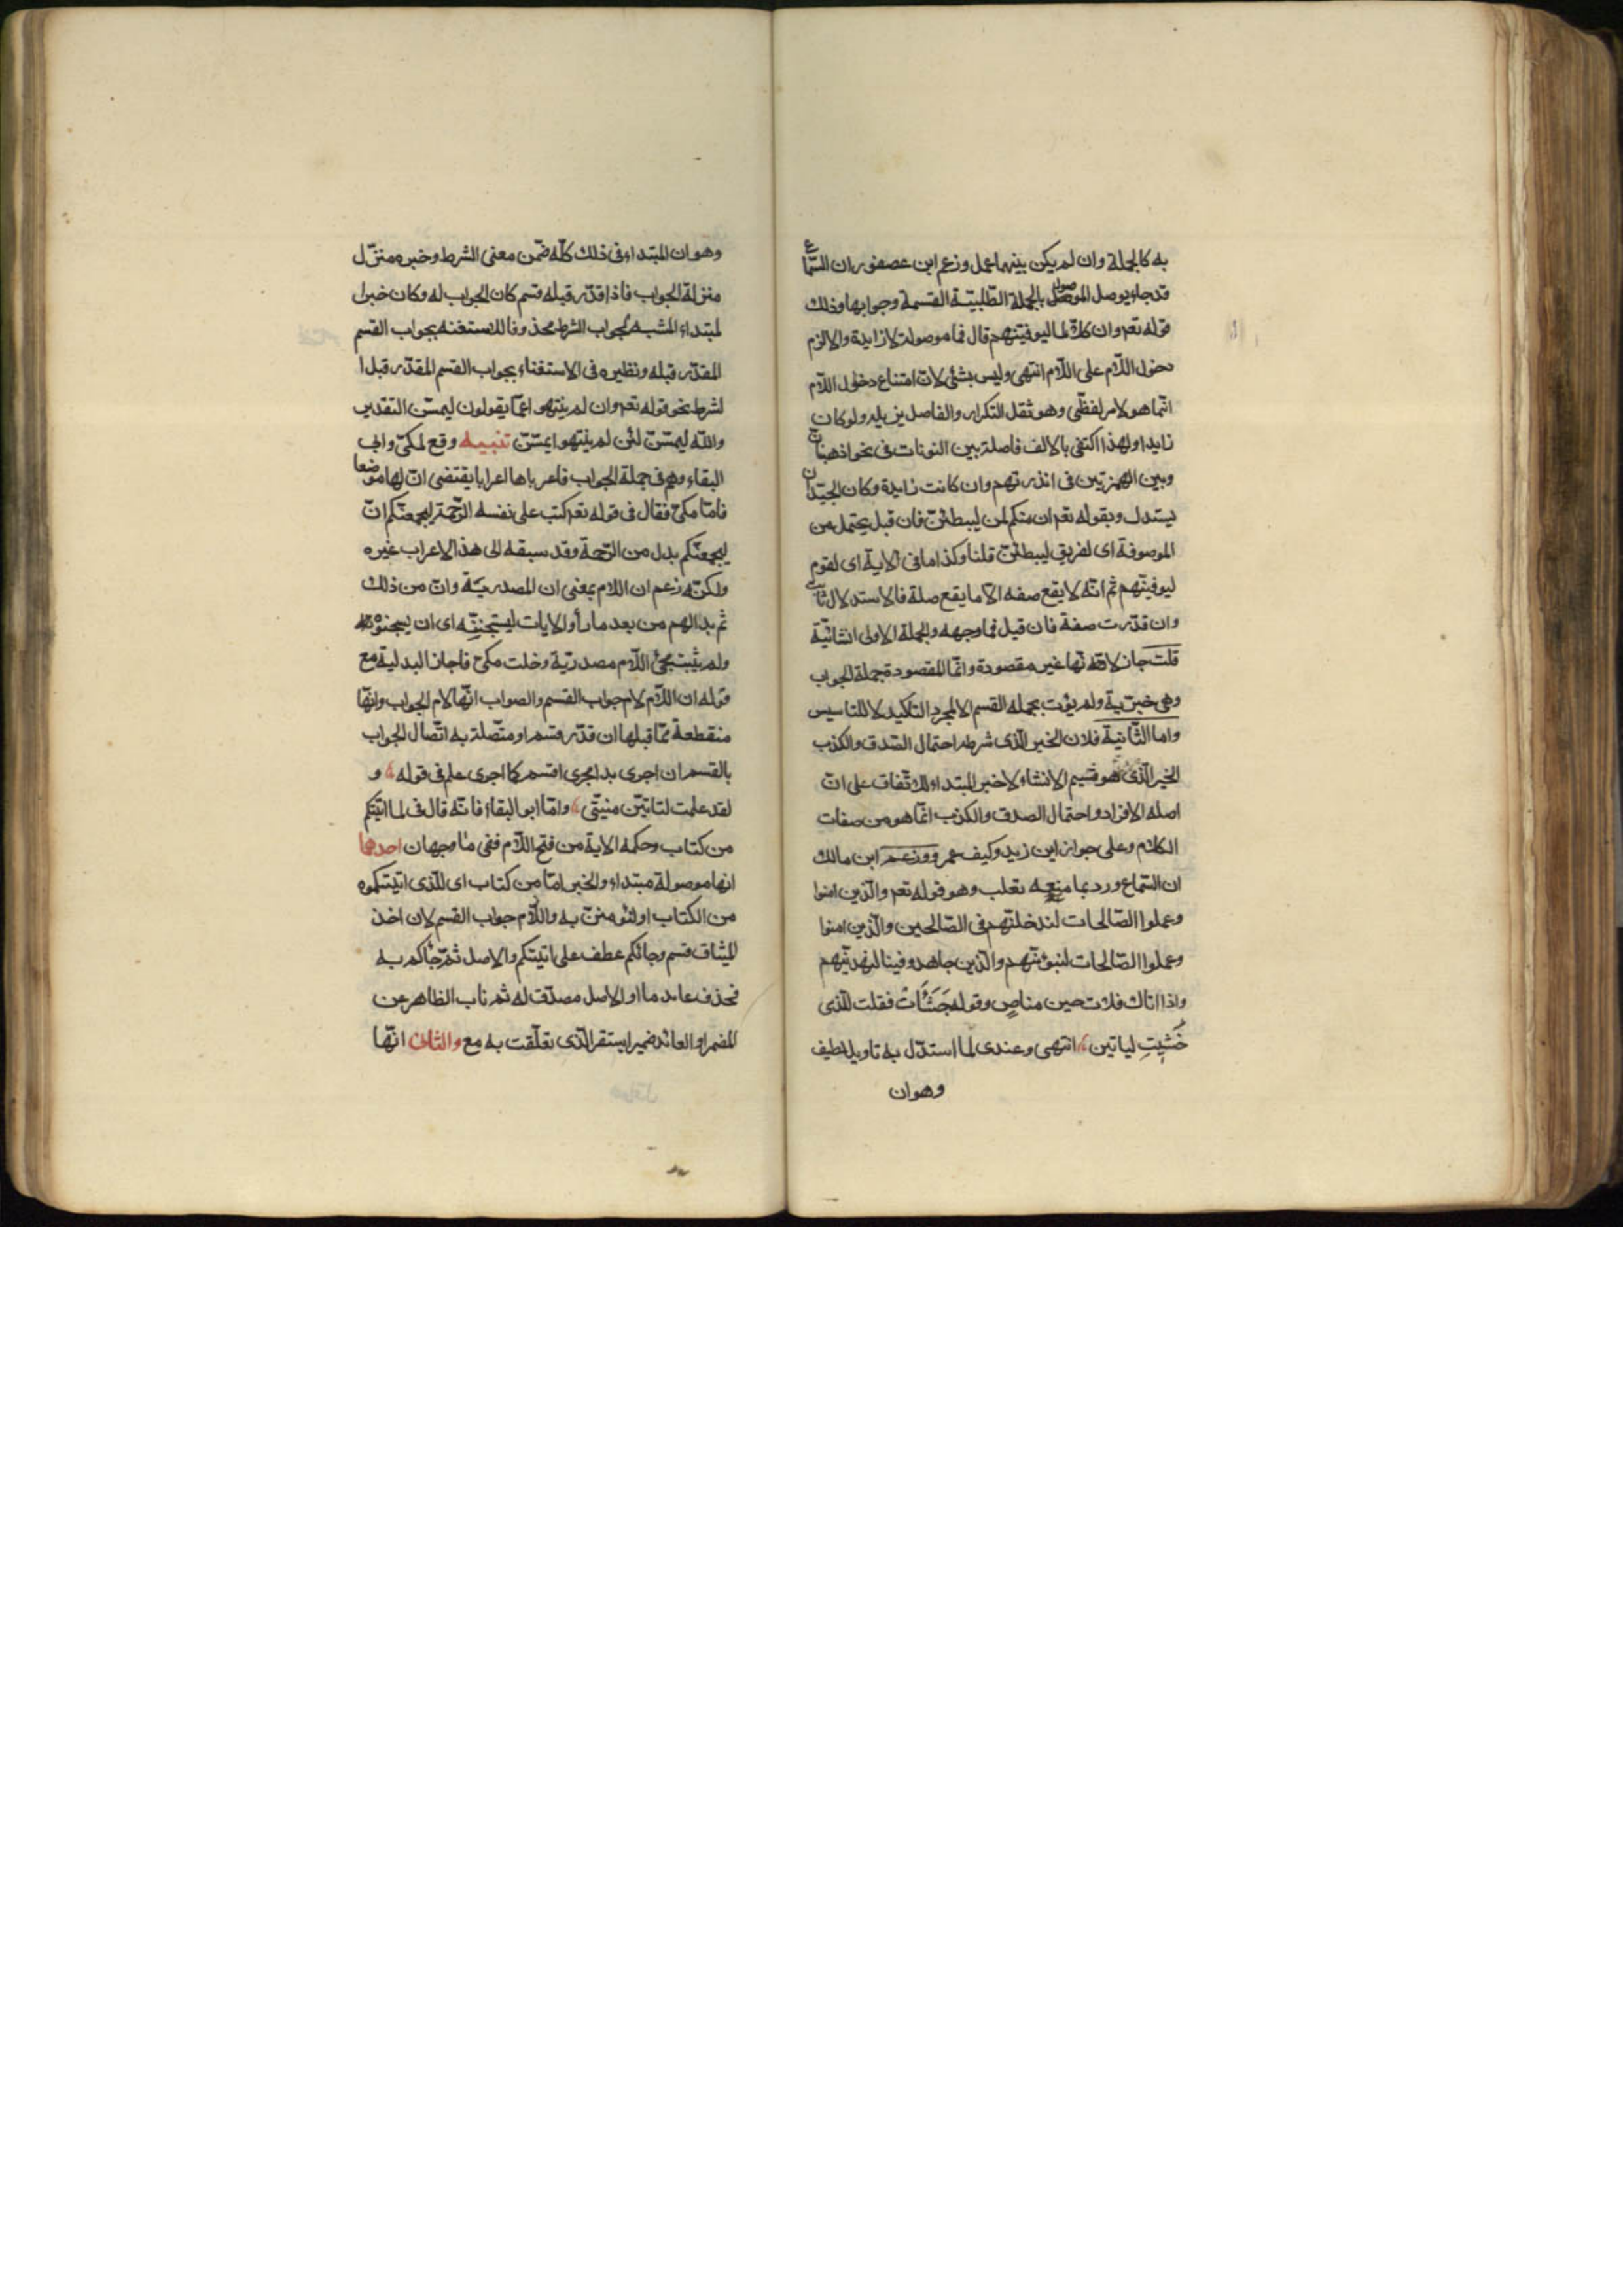 به كالجملة وان لم يكن بينهما عمل وزعم ابن عصفور ان السماع
قد جاء يوصل الموصول بالجملة الطلبيّة القسمة وجوابها وذلك
قوله تعم وان كلا لما ليوفينهم قال فما موصولة لا زايدة والا لزم
دخول اللّام على اللّام انتهى وليس بشئ لان امتناع دخول اللّام
انّما هو لامر لفظّى وهو ثقل التكرار والفاصل يزيله ولو كان
زايدا ولهذا اكتفى بالالف فاصلة بين النونات فى نحو اذهبنان
وبين الهمزتين فى انذرتهم وان كانت زايدة وكان الجيّد ان
يستدل وبقوله تعم ان منكم لمن ليبطئنّ فان قيل يحتمل من
الموصوفة اى لفريق ليبطئنّ قلنا وكذا ما فى الاية اى لقوم
ليوفينهم ثم انّه لا يقع صفه الّا ما يقع صلة فالاستدلال ثابت
وان قدّرت صفة فان قيل فما وجهه والجملة الاولى انشائيّة
قلت جاز لا قه نها غير مقصودة وانّما المقصودة جملة الجواب
وهى خبريّة ولم يؤت بجمله القسم الا لمجرد التاكيد لا للتاسيس
واما الثّانية فلان الخبر الّذى شرطه احتمال الصّدق والكذب
الخبر الّذى هو قسيم الانشاء لا خبر المبتداء للاتّفاق على انّ
اصله الافراد واحتمال الصدق والكذب انّما هو من صفات
الكلام وعلى جواز اين زيد وكيف عمرو وزعم ابن مالك
ان السّماع ورد بما منعه تغلب وهو قوله تعم والّذين امنوا
وعملوا الصّالحات لندخلنّهم فى الصّالحين والّذين امنوا
وعملوا الصّالحات لنبوئنّهم والّذين جاهدوا فينا لنهدينّهم
واذا اتاك فلات حين مناصٍ وقوله جَشَأَتْ فقلت للّذى
خَشِيتِ لياتين انتهى وعندى لما استدّل به تاويل لطيف
وهو ان
وهو ان المبتداء فى ذلك كلّه ضمّن معنى الشرط وخبره منزّل
منزلة الجواب فاذا قدّر قبله قسم كان الجواب له وكان خبرا
لمبتداء المشبه لجواب الشرط محذوفا للاستغنه بجواب القسم
المقدّر قبله ونظيره فى الاستغناء بجواب القسم المقدّر قبل ا
لشرط نحو قوله تعم وان لم ينتهوا عمّا يقولون ليمسّن التقدير
والله ليمسّنّ لئن لم ينتهوا يمسّنّ تنبيه وقع لمكىّ وابى
البقاء وهم فى جملة الجواب فاعرباها اعرابا يقتضى انّ لها موضعا
فامّا مكىّ فقال فى قوله تعم كتب على نفسه الرّحمة ليجمعنّكم انّ
ليجمعنّكم بدل من الرّحمة وقد سبقه الى هذا الاعراب غيره
ولكنّه زعم ان اللام بمعنى ان المصدريّة وانّ من ذلك
ثم بدا لهم من بعد ما رأوا الايات ليستجننّه اى ان يسجنوه
ولم يثبت مجئ اللّام مصدريّة وخلت مكىّ فاجاز البدلية مع
قوله ان اللّام لام جواب القسم والصواب انّها لام الجواب وانّها
منقطعة ممّا قبلها ان قدّر قسم او متّصلة به اتّصال الجواب
بالقسم ان اجرى بدا مجرى اقسم كما اجرى علم فى قوله و
لقد علمت لتاتيّن منيتّى وامّا ابو البقاء فانّه قال فى لما اتيتكم
من كتاب وحكمة الاية من فتح اللّام ففى ما وجهان احدهما
انها موصولة مبتداء والخبر امّا من كتاب اى للّذى اتيتكموه
من الكتاب او لتؤمننّ به واللّام جواب القسم لان اخذ
الميثاق قسم وجائكم عطف على اتيتكم والاصل ثمّ جاكم به
فحذف عايد ما او الاصل مصدّق له ثم ناب الظاهر عن
المضمر او العائد ضمير استقر الّذى تعلّقت به مع والثانى انّها